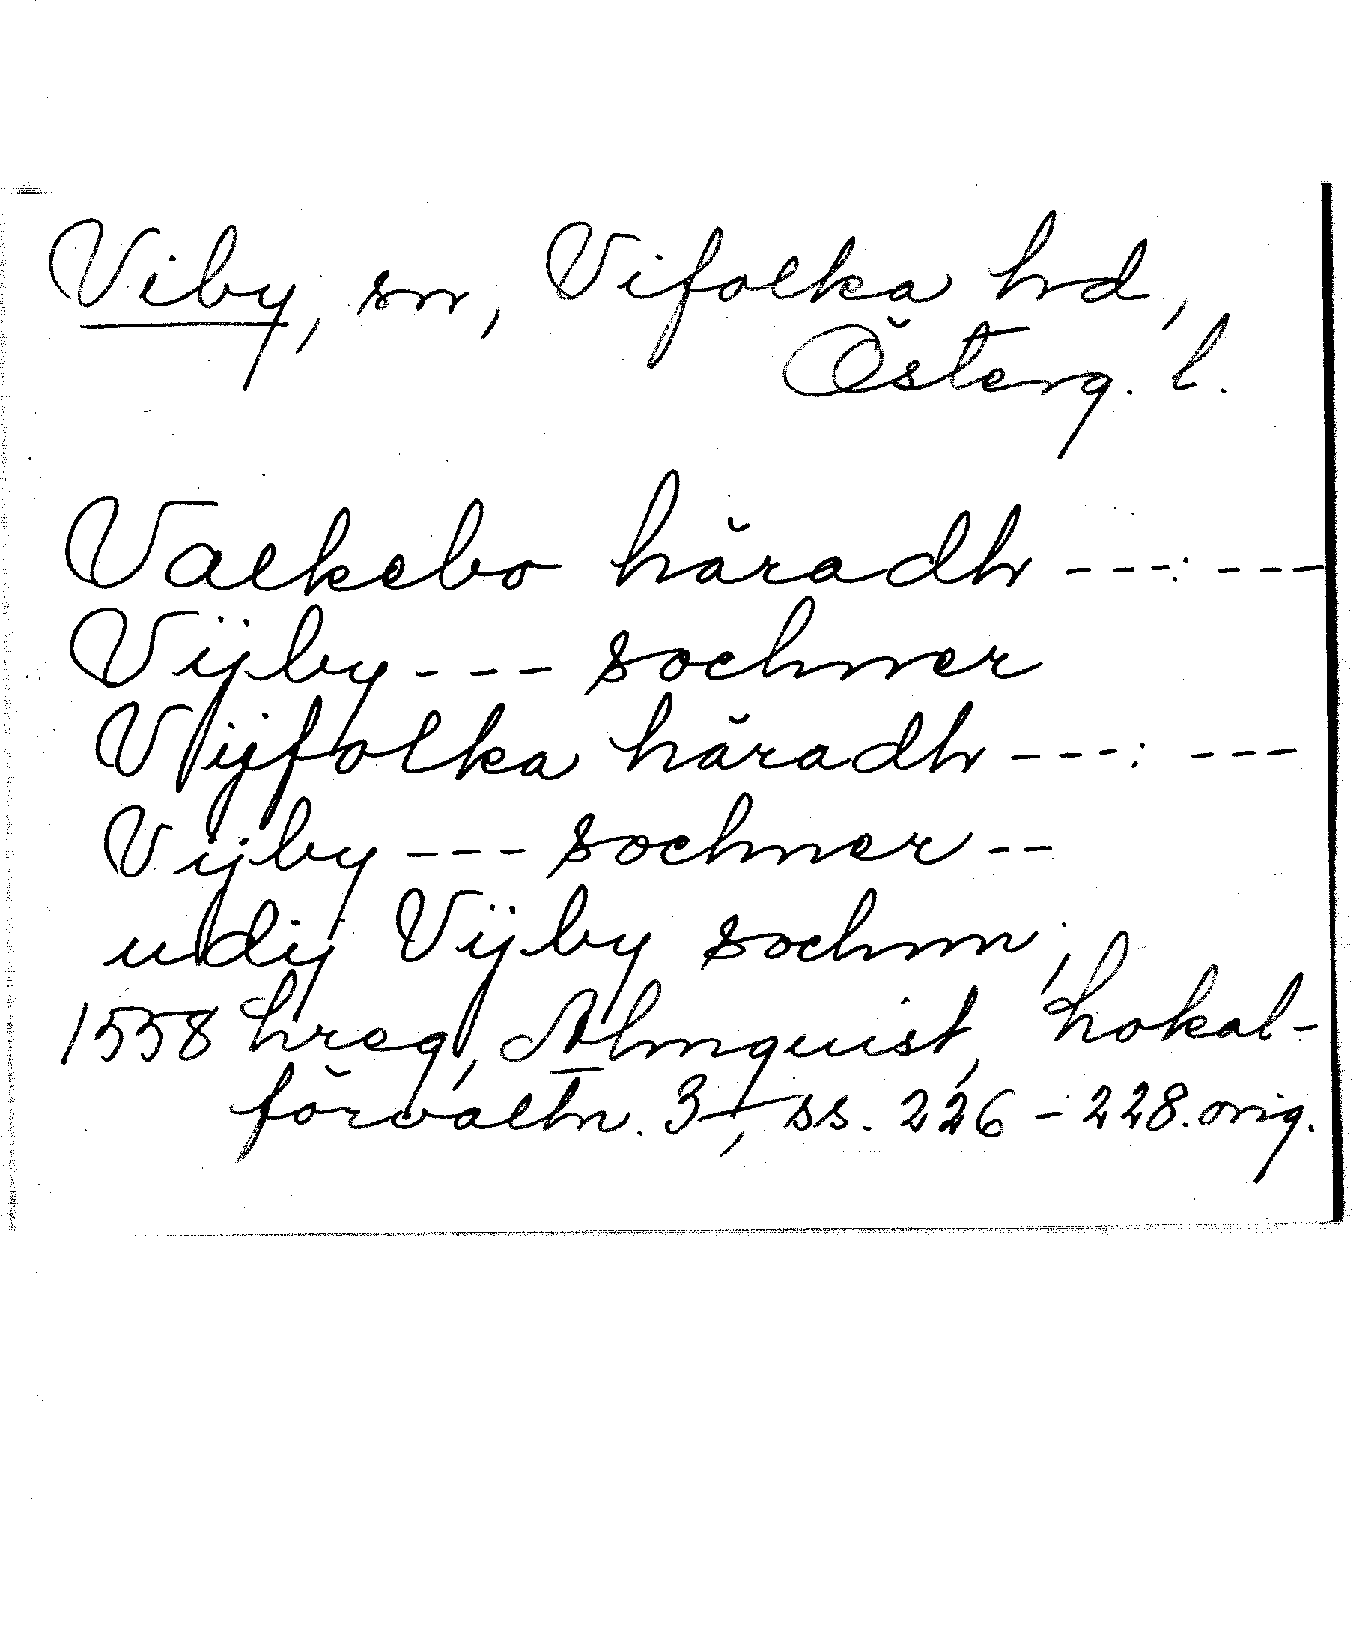 Viby, sn, Vifolka hd,
Österg. l.
Valkebo häradh ---:---
Vijby --- sochner
Vijfolka häradh ---: ---
Vijby --- sochner --
udij Vijby sochnn;
1558 hreg, Almquist, Lokal-
förvaltn. 3, ss. 226 - 228. orig.